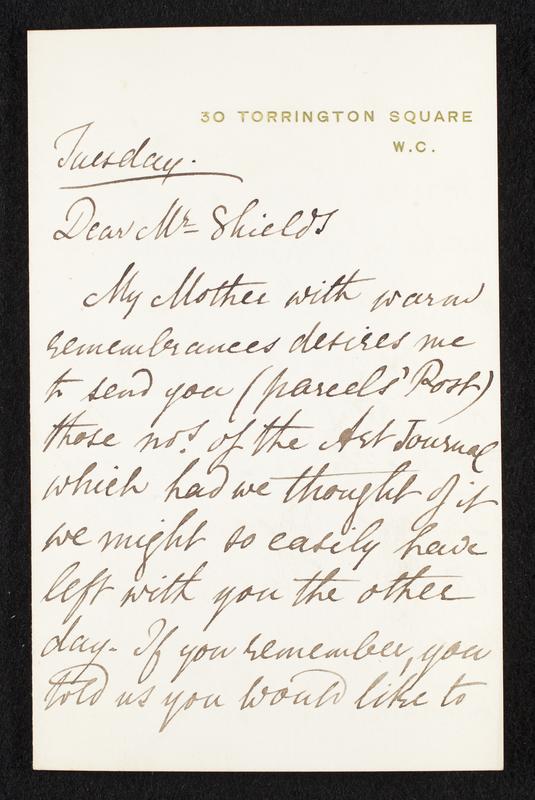 30 TORRINGTON SQUARE
W.C.
Tuesday.
Dear Mr Shields
My Mother with warm
remembrances desires me
to send you (parcels' Post)
those nos. of the Art Journal
which had we thought of it
we might so easily have
left with you the other
day. If you remember, you
told us you would like to